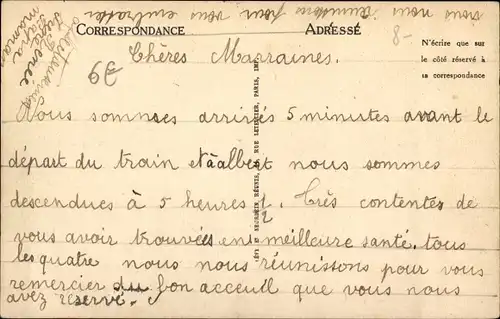 nous nous réunissons pour vous embrasser
CORRESPONDANCE
ADRESSÉ
8-
N'écrire que sur
le côté réservé à
la correspondance
39
Chères Marraines.
Nous sommes arrivés 5 minutes avant le
départ du train et à albert nous sommes
descendues à 5 heures 1/2. Très contentes de
vous avoir trouvées en meilleure santé. tous
les quatre nous nous réunissons pour vous
remercier du bon acceuil que vous nous
avez réservé.